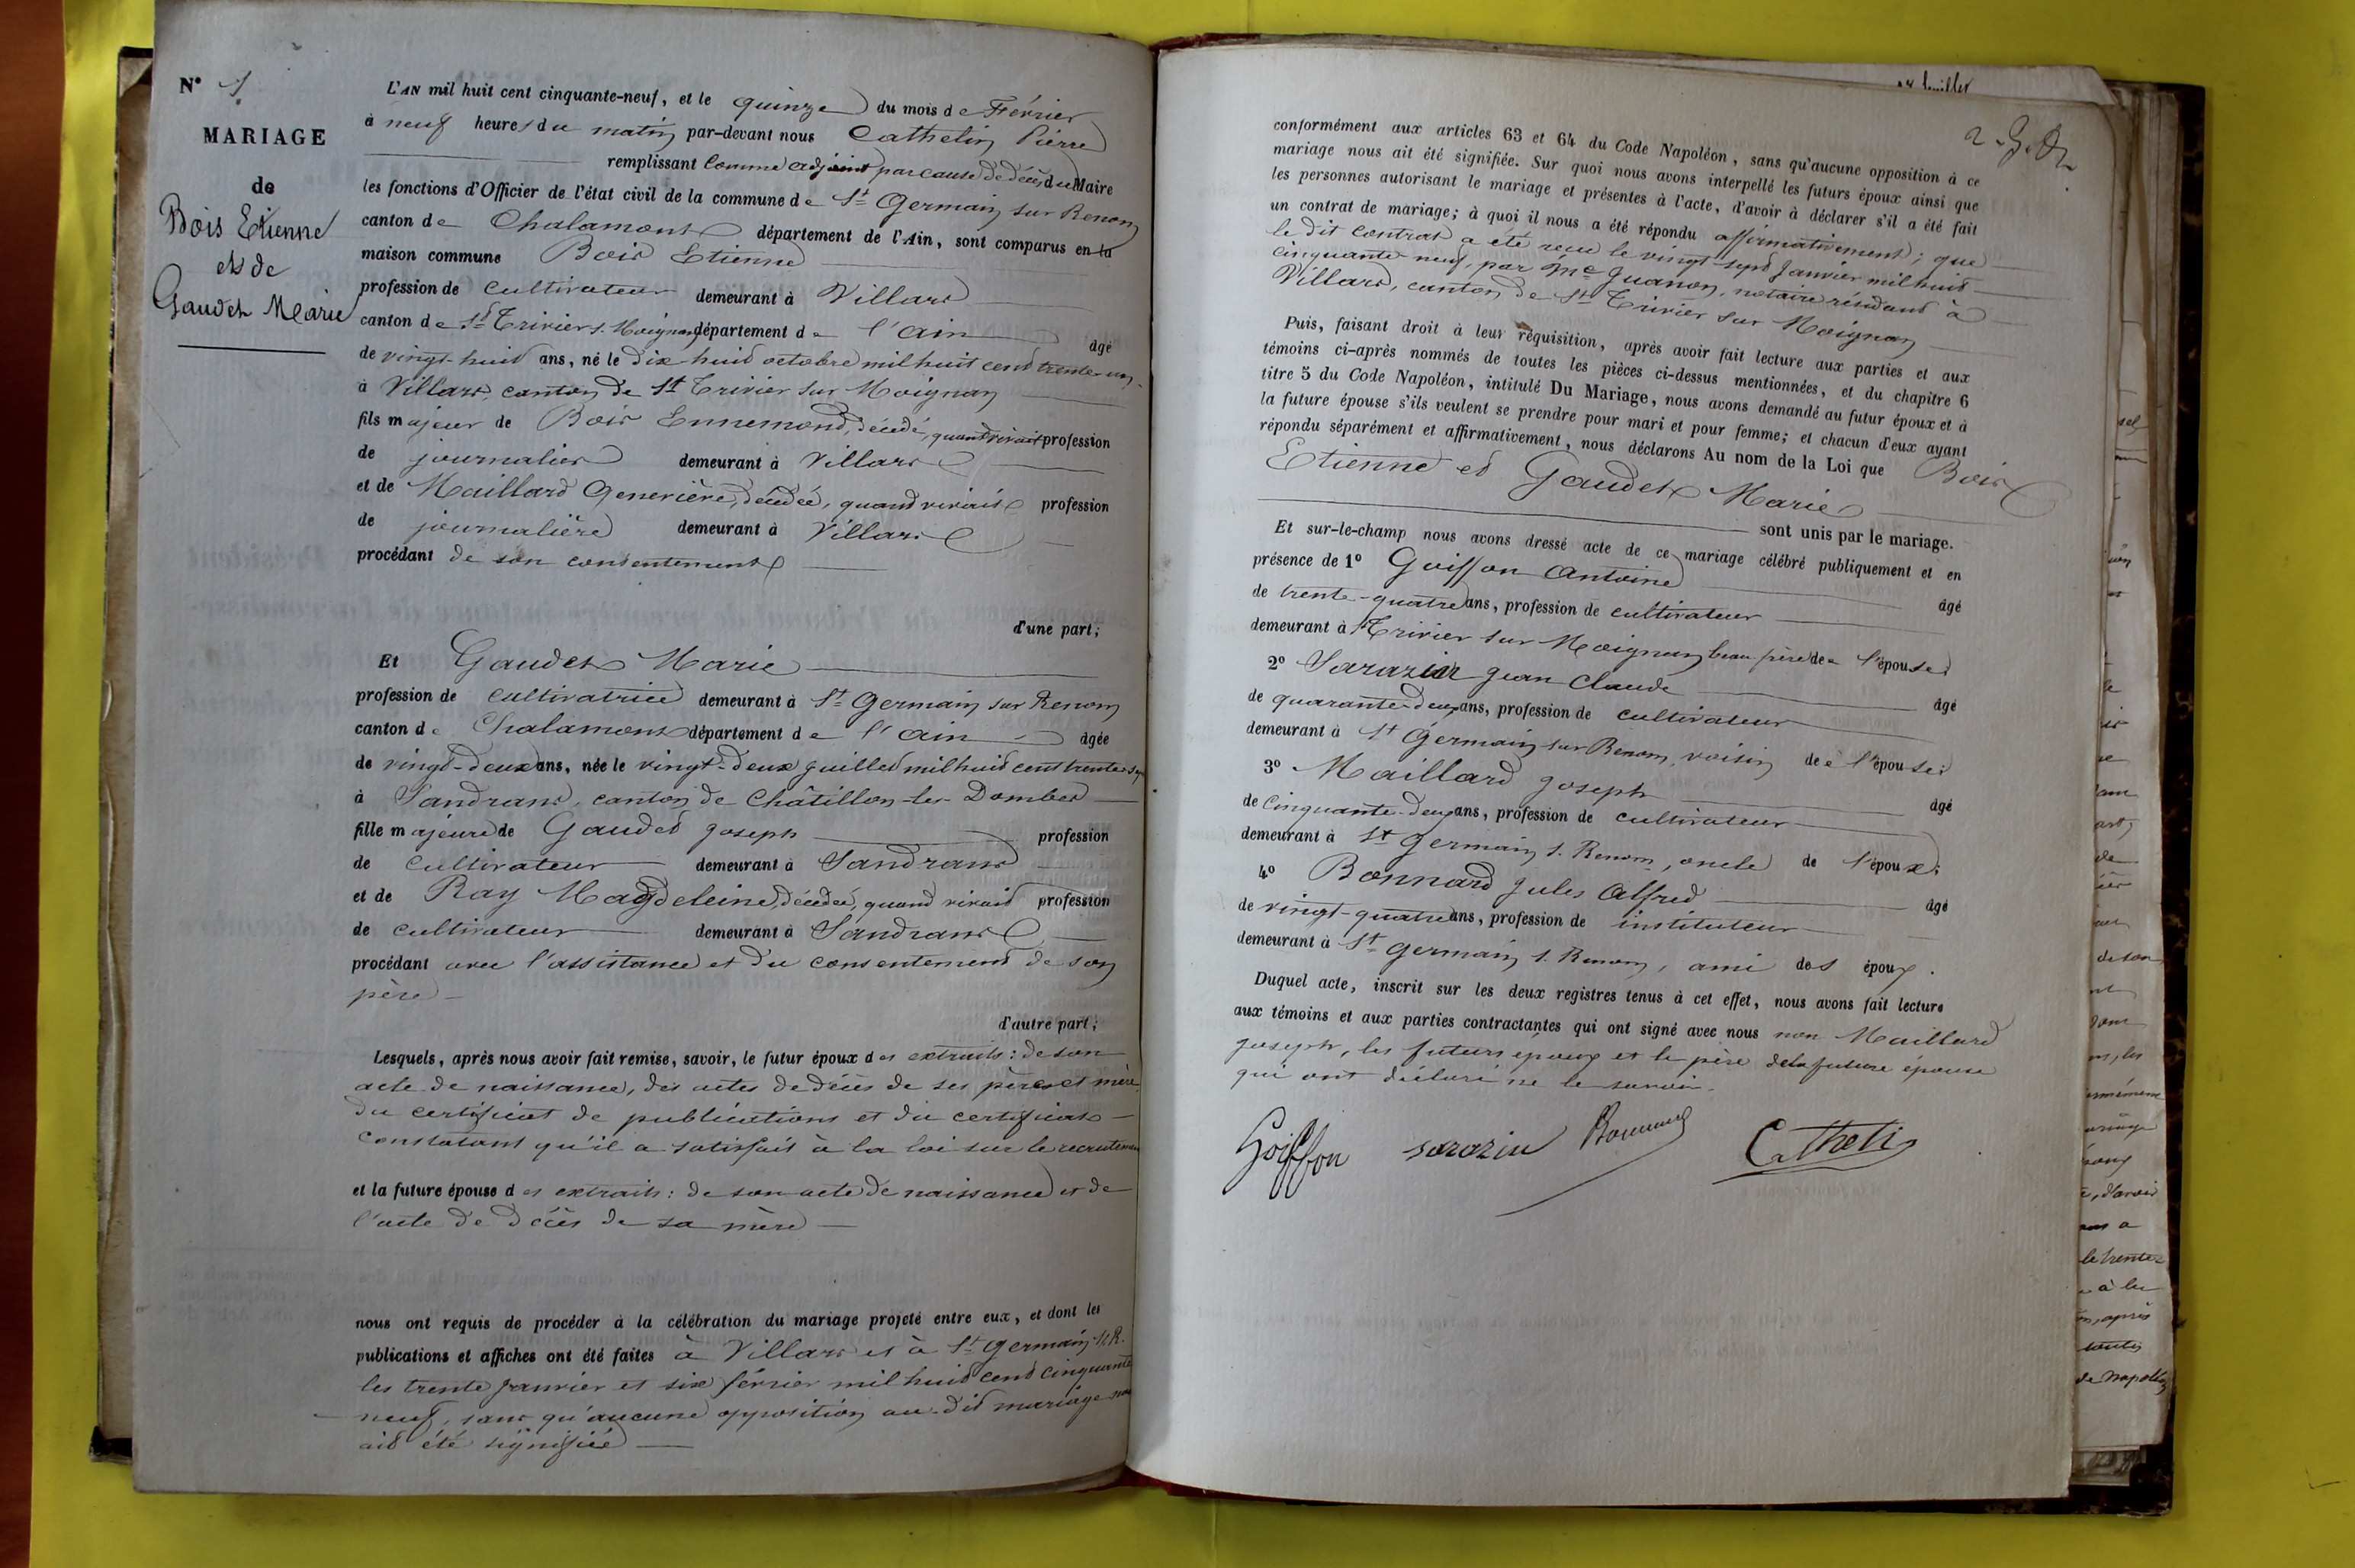 N° 1
MARIAGE
de
Bois Etienne
et de
Gaudet Marie
L'AN mil huit cent cinquante-neuf, et le quinze du mois de Février
à neuf heures du matin par-devant nous Cathelin Pierre
remplissant comme adjoint par cause de décès du Maire
les fonctions d'Officier de l'état civil de la commune de St Germain sur Renom
canton de Chalamont département de l'Ain, sont comparus en la
maison commune Bois Etienne
profession de cultivateur demeurant à Villars
canton de St Trivier s. Moignan département de l'Ain âgé
de vingt-huit ans, né le dix-huit octobre mil huit cent trente un
à Villars, canton de St Trivier sur Moignan
fils majeur de Bois Ennemond, décédé, quand vivait profession
de journalier demeurant à Villars
et de Maillard Geneviève, décédée, quand vivait profession
de journalière demeurant à Villars
procédant de son consentement
d'une part;
Et Gaudet Marie
profession de cultivatrice demeurant à St Germain sur Renom
canton de Chalamont département de l'Ain âgée
de vingt-deux ans, née le vingt-deux juillet mil huit cent trente
à Sandrans, canton de Châtillon-les-Dombes
fille majeure de Gaudet Joseph profession
de cultivateur demeurant à Sandrans
et de Ray Magdeleine, décédée, quand vivait profession
de cultivateur demeurant à Sandrans
procédant avec l'assistance et du consentement de son
père
d'autre part;
Lesquels, après nous avoir fait remise, savoir, le futur époux des extraits: de son
acte de naissance, des actes de décès de ses père et mère
du certificat de publications et du certificat
constatant qu'il a satisfait à la loi sur le recrutement
et la future épouse des extraits: de son acte de naissance et de
l'acte de décès de sa mère
nous ont requis de procéder à la célébration du mariage projeté entre eux, et dont les
publications et affiches ont été faites à Villars et à St Germain s. R.
les trente janvier et six février mil huit cent cinquante
neuf, sans qu'aucune opposition au dit mariage nous
ait été signifiée
conformément aux articles 63 et 64 du Code Napoléon, sans qu'aucune opposition à ce
mariage nous ait été signifiée. Sur quoi nous avons interpellé les futurs époux ainsi que
les personnes autorisant le mariage et présentes à l'acte, d'avoir à déclarer s'il a été fait
un contrat de mariage; à quoi il nous a été répondu affirmativement; que
le dit contrat a été reçu le vingt-sept Janvier mil huit
cinquante neuf, par Me Juanon, notaire résidant à
Villars, canton de St Trivier sur Moignan
Puis, faisant droit à leur réquisition, après avoir fait lecture aux parties et aux
témoins ci-après nommés de toutes les pièces ci-dessus mentionnées, et du chapitre 6
titre 5 du Code Napoléon, intitulé Du Mariage, nous avons demandé au futur époux et à
la future épouse s'ils veulent se prendre pour mari et pour femme; et chacun d'eux ayant
répondu séparément et affirmativement, nous déclarons Au nom de la Loi que Bois
Etienne et Gaudet Marie
sont unis par le mariage.
Et sur-le-champ nous avons dressé acte de ce mariage célébré publiquement et en
présence de 1° Goiffon Antoine âgé
de trente-quatre ans, profession de cultivateur
demeurant à St Trivier sur Moignan beau frère de l'épouse;
2° Sarazin Jean Claude âgé
de quarante-deux ans, profession de cultivateur
demeurant à St Germain sur Renom, voisin de l'épouse;
3° Maillard Joseph âgé
de cinquante-deux ans, profession de cultivateur
demeurant à St Germain s. Renom, oncle de l'époux;
4° Bonnard Jules Alfred âgé
de vingt-quatre ans, profession de instituteur
demeurant à St Germain s. Renom, ami des époux.
Duquel acte, inscrit sur les deux registres tenus à cet effet, nous avons fait lecture
aux témoins et aux parties contractantes qui ont signé avec nous non Maillard
Joseph, les futurs époux et le père de la future épouse
qui ont déclaré ne le savoir.
Goiffon sarazin Bonnard Cathelin